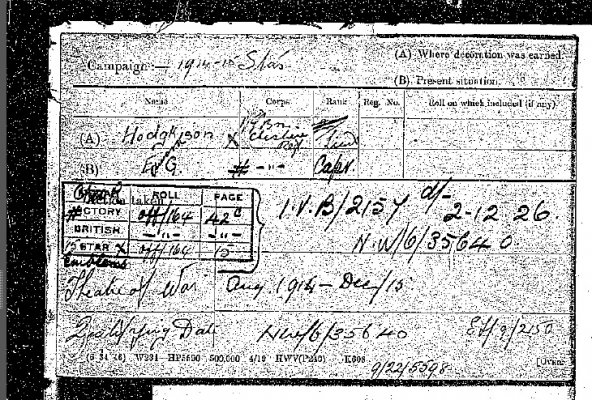 Campaign :— 1914-15 Star
(A) Where decoration was earned.
(B) Present situation.
Name Corps Rank Reg. No. Roll on which included (if any).
(A) Hodgkison X Bn Cheshire Reg Lieut
(B) E.G. # —"— Capt.
Action taken
ROLL PAGE
VICTORY Off/164 42
BRITISH —"— —"—
15 STAR X Off/164 15
emblems
I.V.B/2157 d/- 2-12 26.
N.W/6/35640
Theatre of War Aug. 1914 – Dec/15
Qualifying Date NW/6/35640 EF/9/2150
(6 34 46) W234—HP5590 500,000 4/19 HWV(P240) K608
9/22/5598
[OVER.